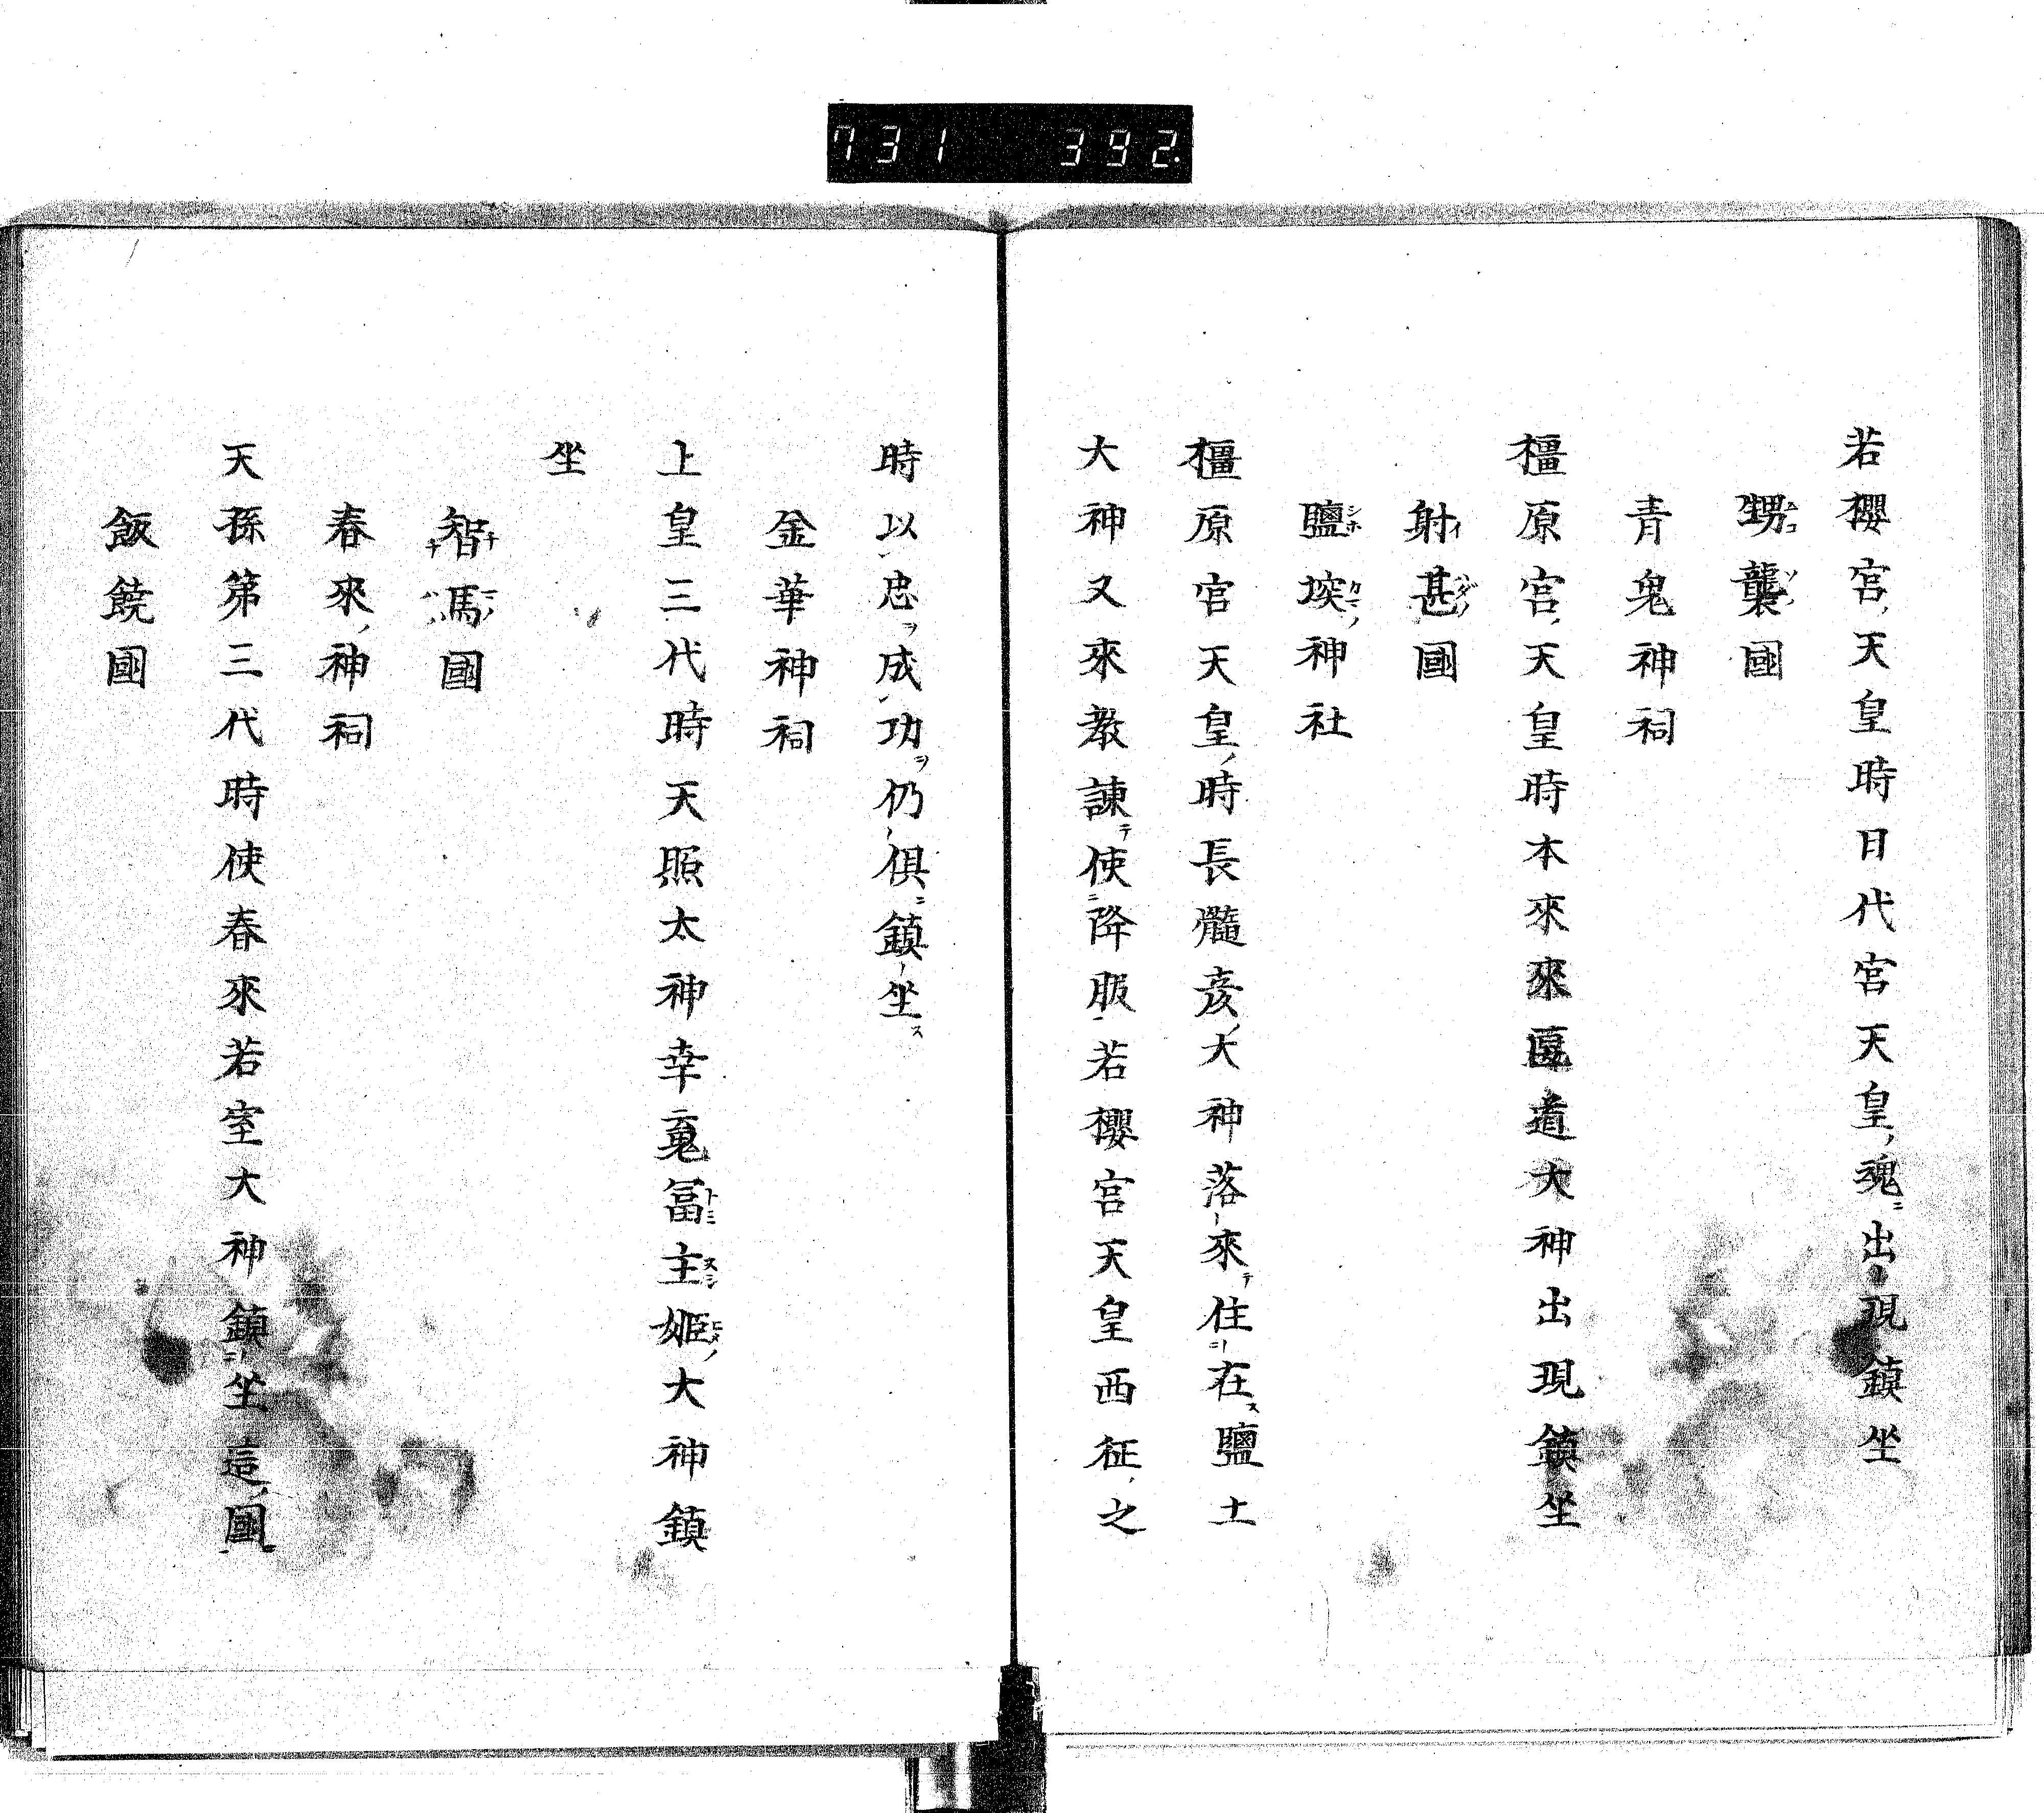 731 392.
若櫻宮ノ天皇時日代宮天皇ノ魂ニ出現鎮坐
甥襲國
青鬼神祠
橿原宮ノ天皇時本來來匽道大神出現鎮坐
射甚國
鹽埃神社
橿原宮天皇ノ時長髓彥ノ大神落來テ住在ス鹽土
大神又來教諫テ使降服若櫻宮天皇西征之
時以忠ヲ成功ヲ仍俱ニ鎮坐ス
金華神祠
上皇三代時天照太神幸䰟冨主姬ノ大神鎮
坐
智馬國
春來ノ神祠
天孫第三代時使春來若室大神鎮坐這ノ國
飯饒國